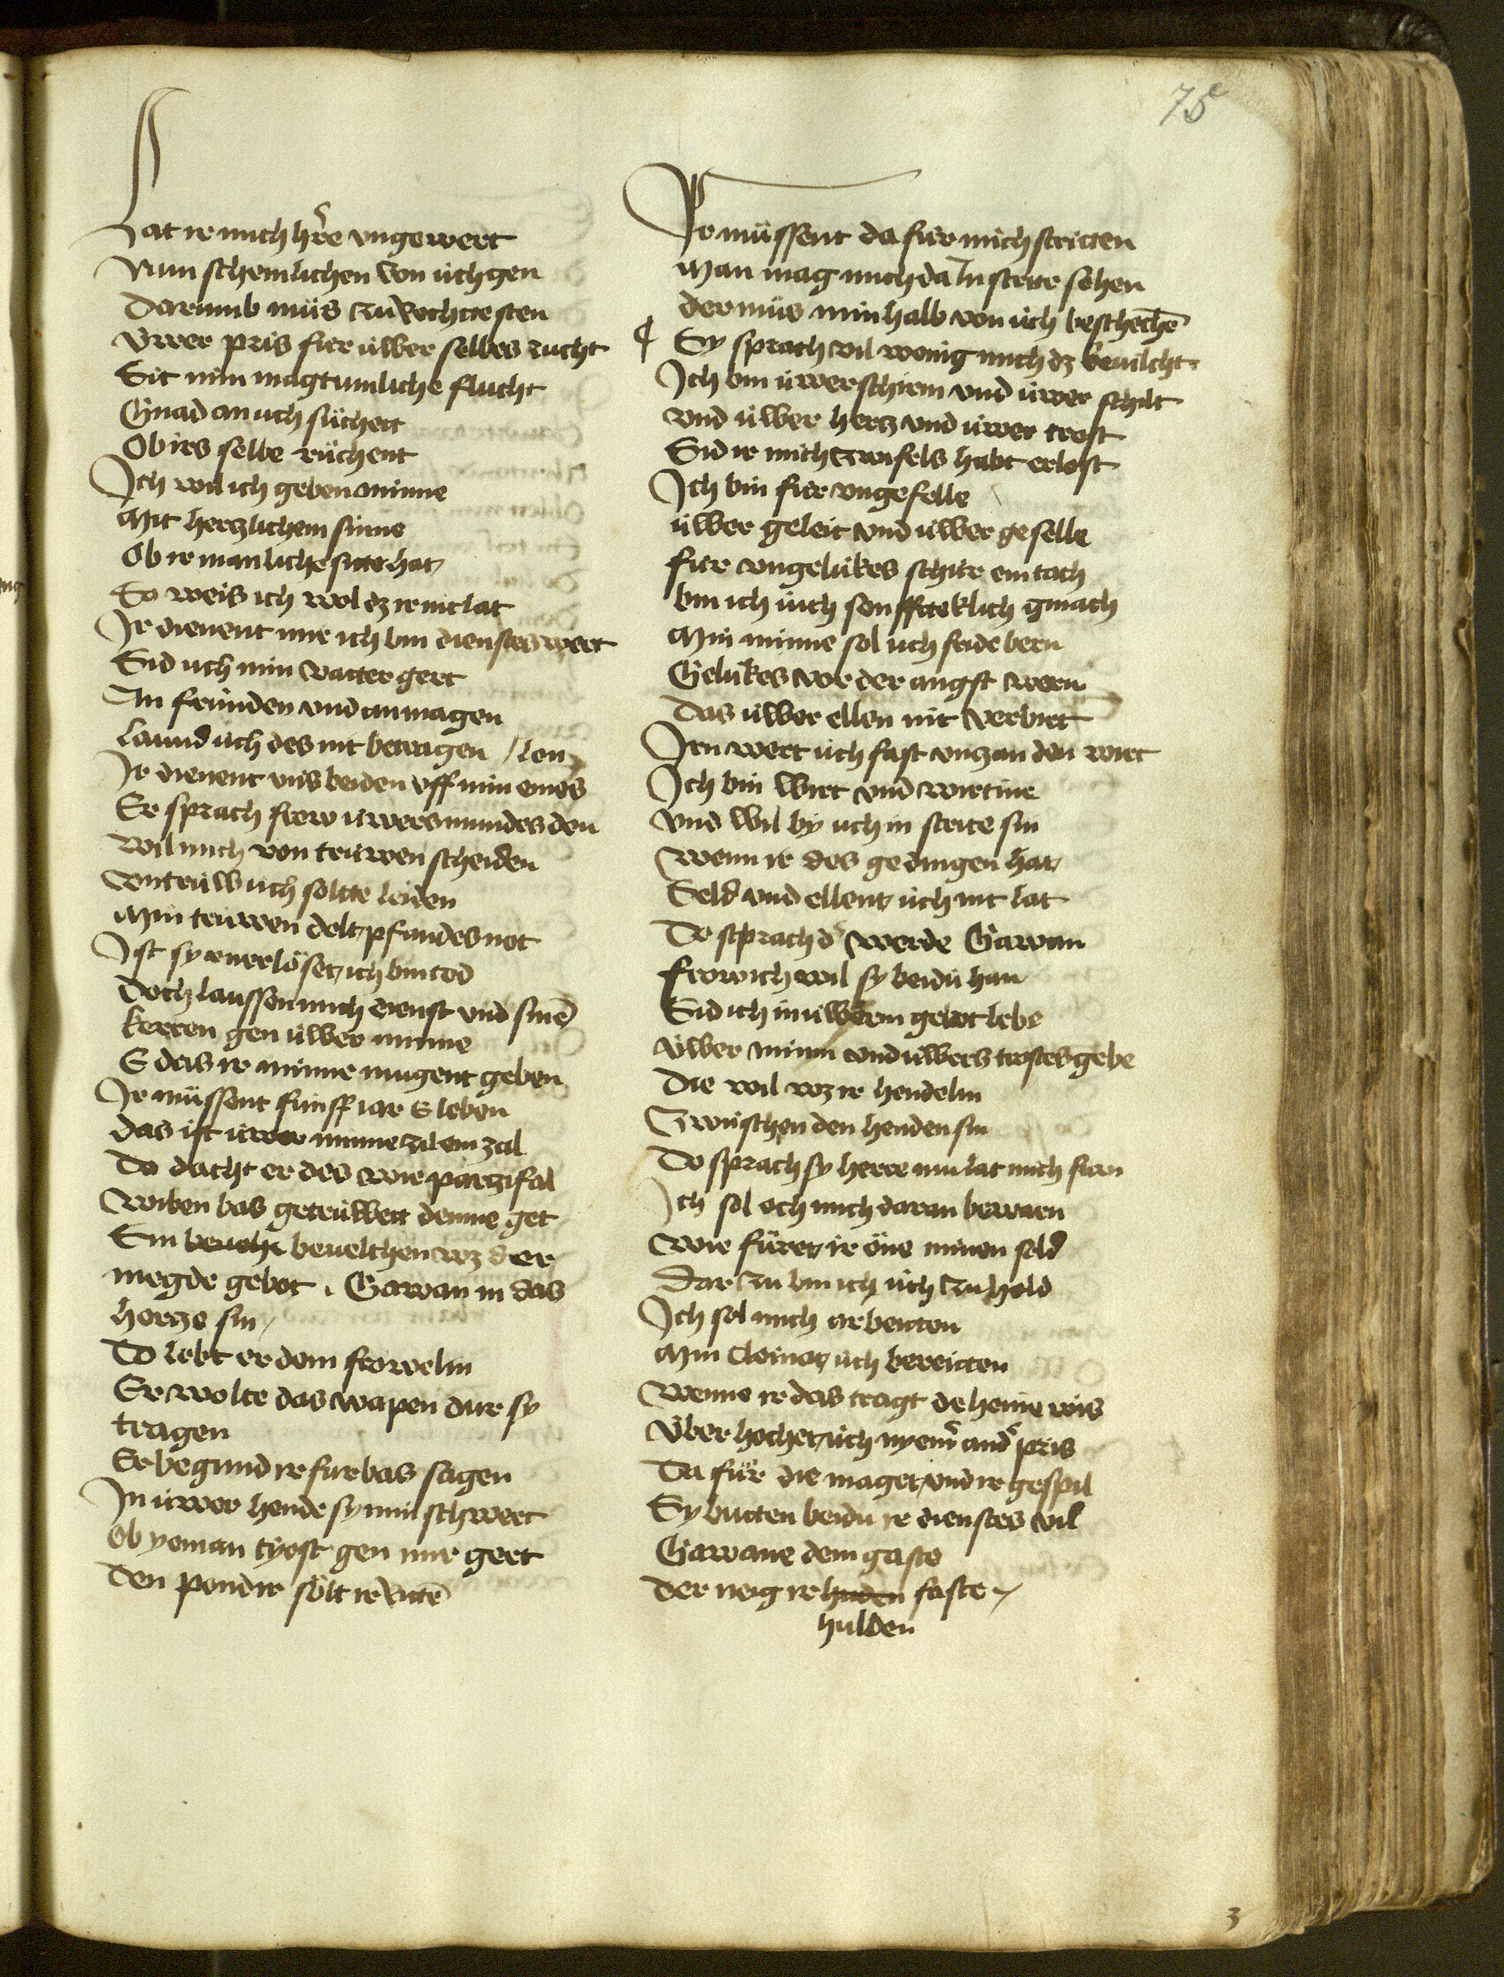 75
Lat ir mich hr̄e vngewert
Mun schemlichen von üch gen
Darumb müs zu vechtte sten
Vwer pris für üwer selbes zucht
Sit min magtumliche flucht
Gnad an uch süchett
Ob irs selbe rüchent
Ich wil ich geben minne
Mit hertzlichem sinne
Ob ir manliche sitte hat
So weis ich wol dz ir nit lat
Ir dienent mir ich bin dienstes wert
Sid uch min vatter gert
An fründen vnd an magen
Laund üch des nit betragen / lon
Ir dienent vns beiden vff min eines
Er sprach frow üwers mundes don
Wil mich von trüwen scheiden
Vntrüw üch soltte leiden
Min trüwen dolt pfandes not
Ist sy vnerlöset ich bin tod
Doch laussen mich dienst vnd sinē
Kerren gen üwer minne
E das ir minne mugent geben
Ir müssent fünff iar E leben
Das ist üwer minne zil ein zal
Do dacht er des wie partzifal
Wiben bas getrüwett denne get
Sin bevohe beuelchen wz der
megde gebot . Gawan in das
hertze sin
Do lebt er dem frowelin
Er wolte das wapen dur sy
tragen
Er begund ir furbas sagen
In üwer hende sy min schwert
Ob yeman tyost gen mir gert
Den pondir sölt ir ritē
Ir müssent da für mich stritten
Man mag mich da In strite sehen
der müs min halb von üch beschechē
¶ Sy sprach vil wenig mich dz beuilcht
Ich bin üwer schirm vnd üwer schilt
vnd üwer hertz vnd üwer trost
Sid ir mich zwifels habt erlost
Ich bin für vngefelle
üwer geleit vnd üwer geselle
für vngelükes schür ein tach
bin ich üch senffteklich gmach
Min minne sol üch fride bern
Gelükes vor der angst wern
Das üwer ellen nit verbirt
Irn wert üch fast vntz an den wirt
Ich bin wirt vnd wirtine
vnd wil by uch in strite sin
Wenn ir des gedingen hat
Seld vnd ellent üch nit lat
Do stprach d' werde Gawan
frow ich wil sy beidü han
Sid ich in üwerm gebot lebe
Vwer minn vnd üwers trostes gebe
Die wil wz ir hendelin
Zwüschen den henden sin
Do sprach sy herre nu lat mich farn
Ich sol och mich daran bewarn
Wie füret ir öne minen sold
Dar zu bin ich üch zu hold
Ich sol mich arbeitten
Min cleinot üch bereitten
Wenne ir das tragt deheine wis
Vber hochet üch nyem̄ and' pris
Da für die maget vnd ir gespil
Sy butten beidu ir dienstes vil
Gawane dem gaste
Der neig ir huden faste
hulden
3